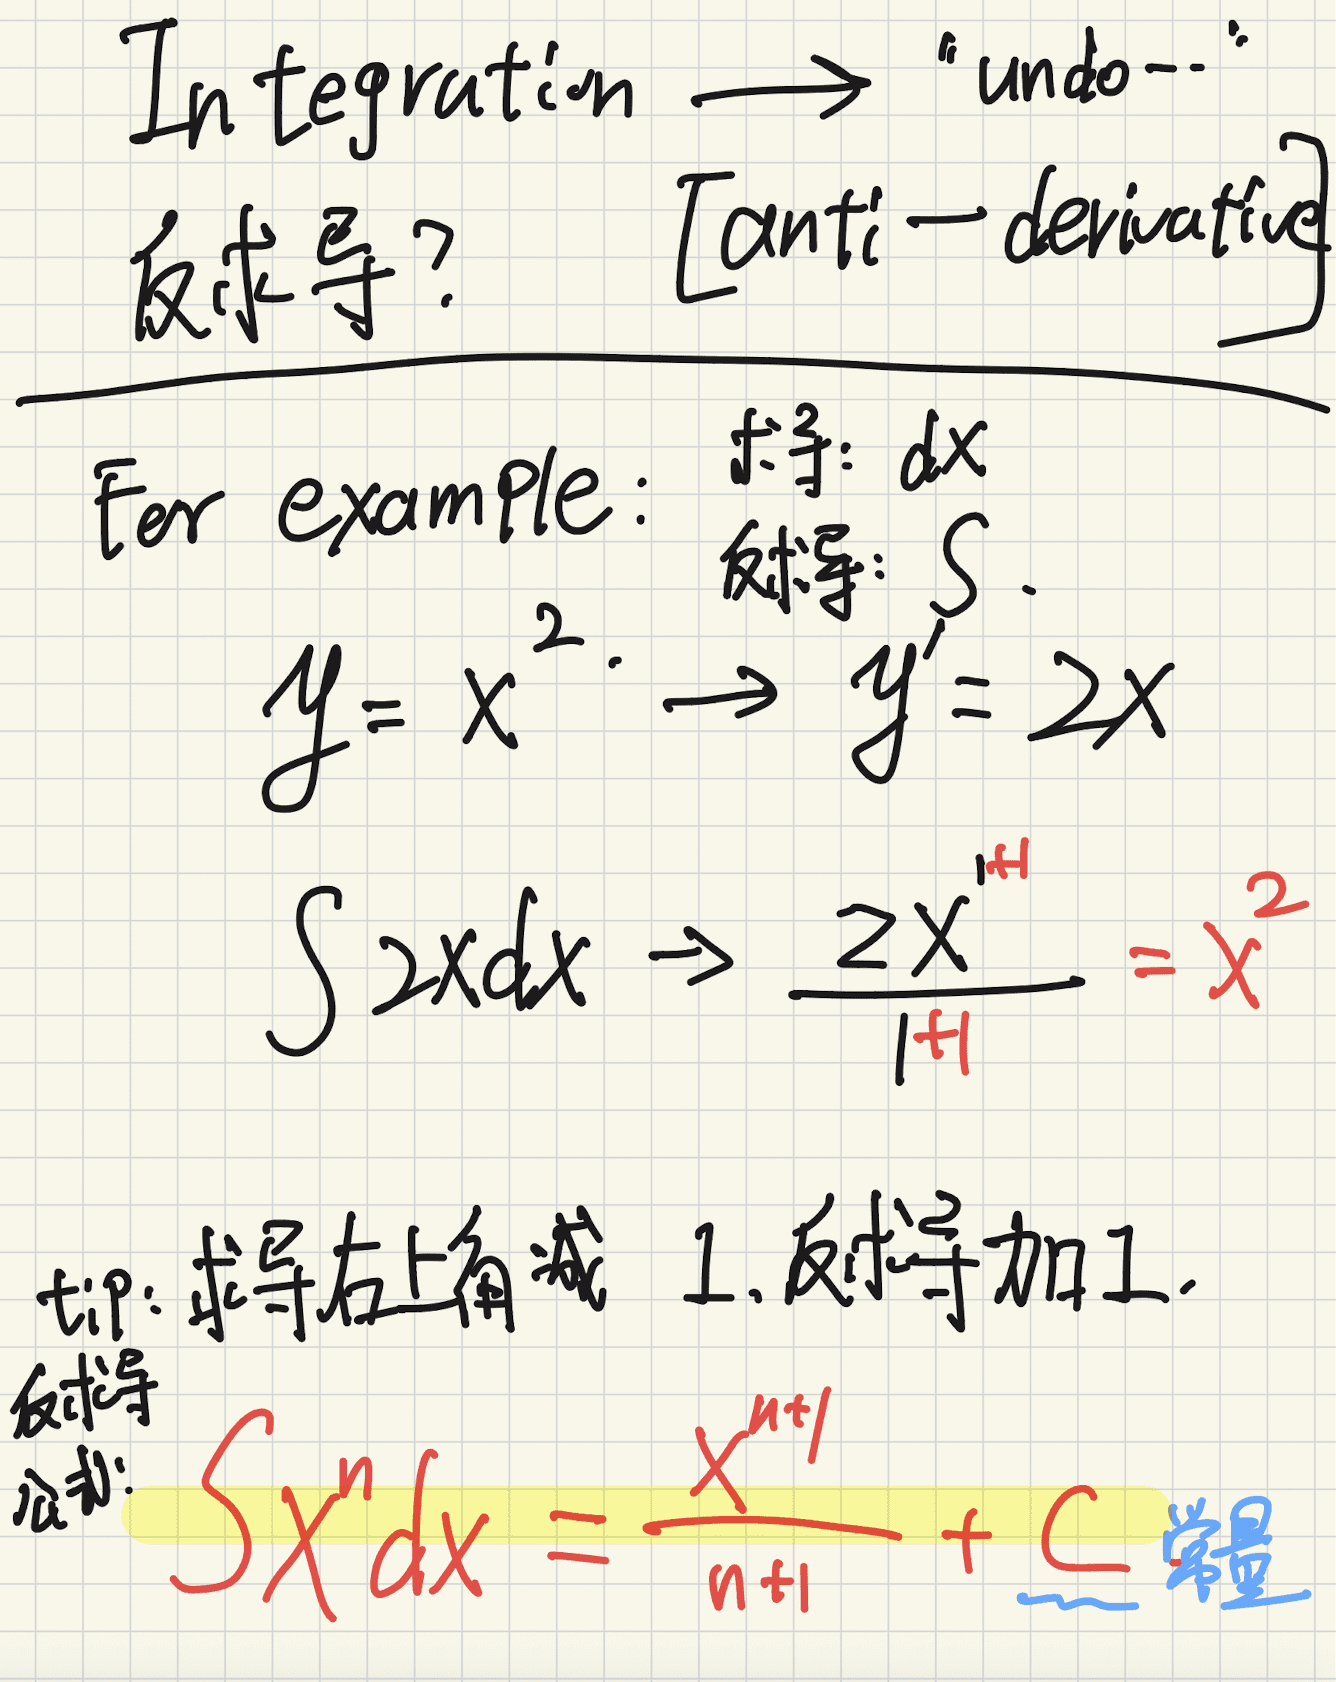 Integration → "undo--"
反求导? [anti-derivative]
For example: 求导: dx
反求导: ∫.
y = x². → y' = 2x
∫2xdx → 2x^(1+1) / 1+1 = x²
tip: 求导右上角减 1. 反求导加1.
反求导
公式:
∫xⁿdx = x^(n+1) / n+1 + C 常量